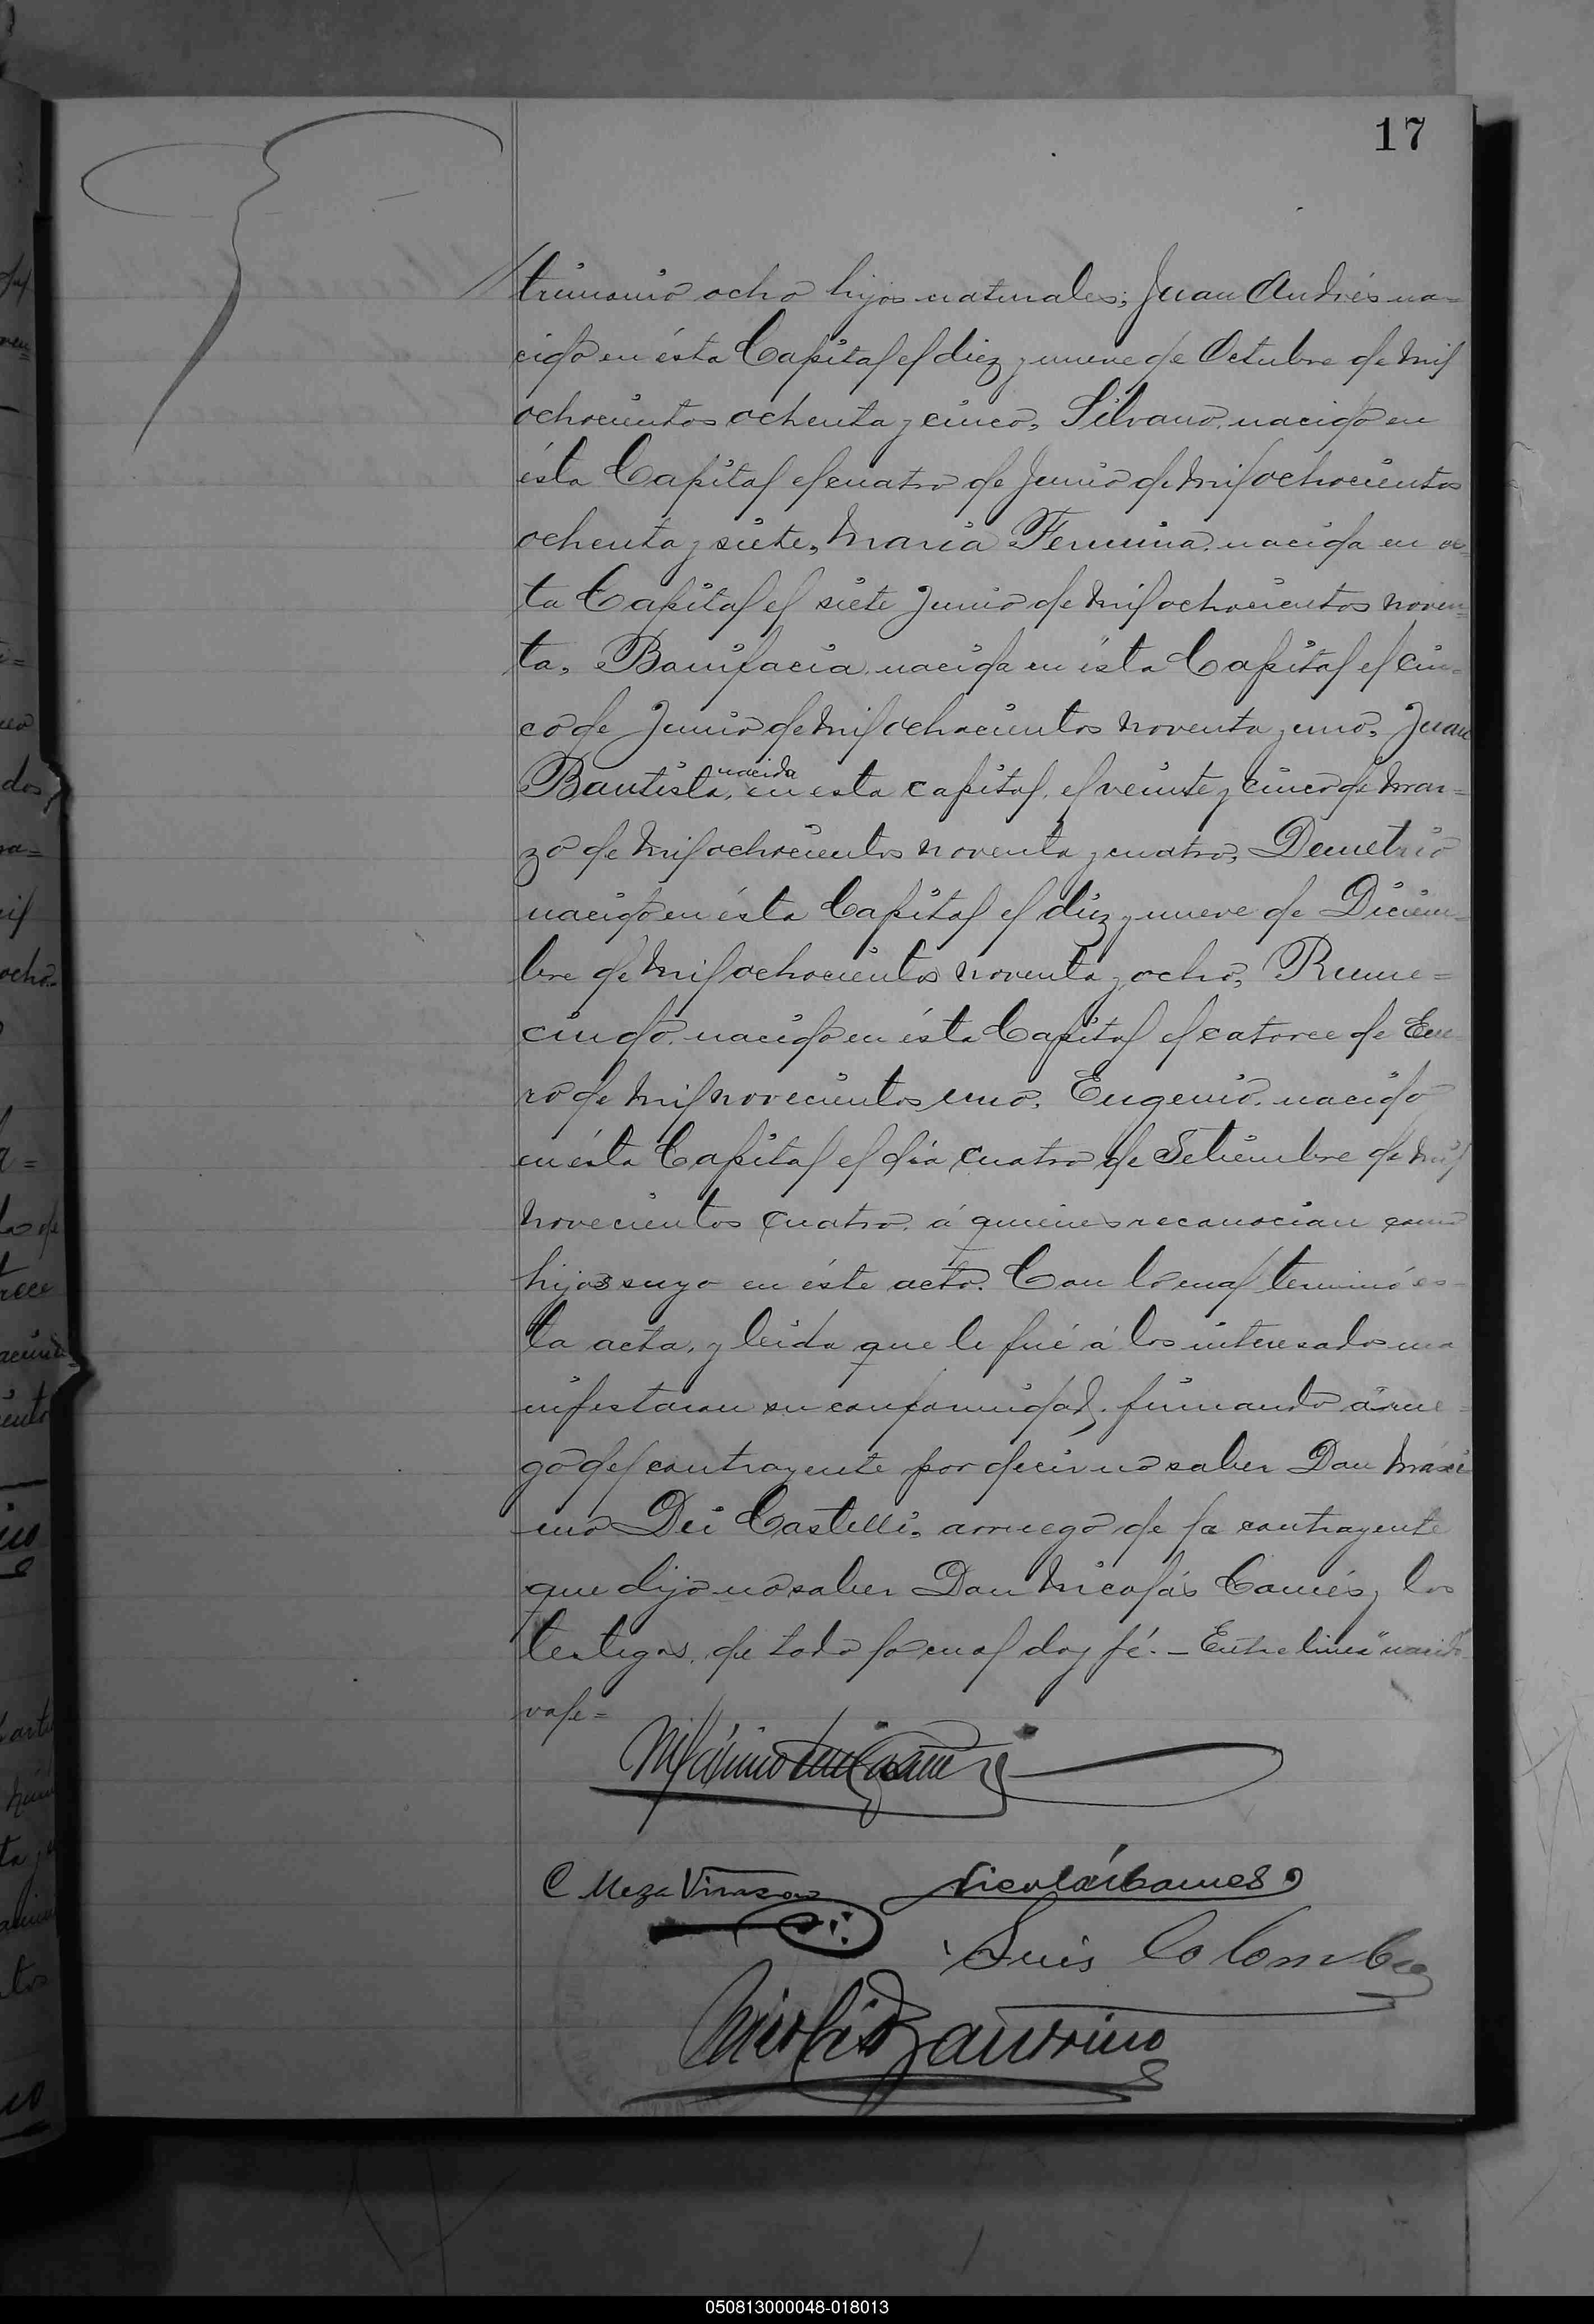 17
trimonio ocho hijos naturales; Juan Andrés na=
cido en ésta Capital el diez y nueve de Octubre de mil
ochocientos ochenta y cinco, Silvano, nacido en
ésta Capital el cuatro de Junio de mil ochocientos
ochenta y siete, María Fermina, nacida en es=
ta Capital el siete Junio de mil ochocientos noven=
ta, Bonifacia, nacida en ésta Capital el cin=
co de Junio de mil ochocientos noventa y uno, Juan
nacido
Bautista, en esta capital, el veinte y cinco de Mar=
zo de mil ochocientos noventa y cuatro, Demetrio
nacido en ésta Capital el diez y nueve de Diciem=
bre de mil ochocientos noventa y ocho, Rume=
cindo, nacido en ésta Capital el catorce de Ene
ro de mil novecientos uno, Eugenio, nacido
en ésta Capital el día cuatro de Setiembre de mil
novecientos cuatro, á quienes reconocian como
hijos suyo en éste acto. Con lo cual terminó es=
ta acta, y leida que le fué á los interesados ma
nifestaron su conformidad, firmando á rue=
go del contrayente por decir no saber Don Máxi
mo Dei Castelli, a ruego de la contrayente
que dijo no saber Don Nicolás Camés y los
testigos, de todo lo cual doy fé.- Entre linea "nacido"
vale=
Máximo
C Meza Virasoro
Nicolás Cames
Luis Colombo
050813000048-018013